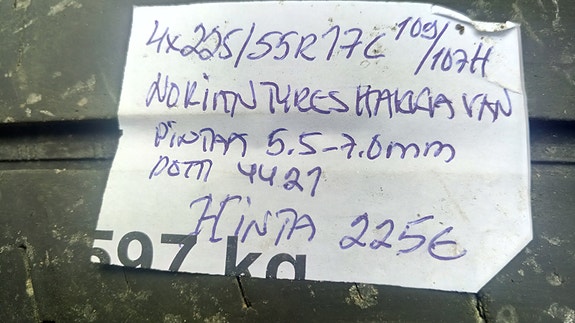 4x225/55R17C 109/107H
NOKIAN TYRES HAKKA VAN
PINTAA 5.5-7.0mm
DOTTI 4421
HINTA 225€
597 kg